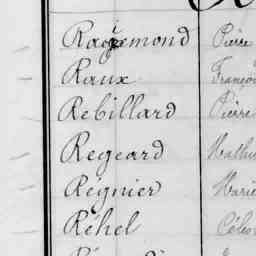 Raguemond Pierre
Raux Françoi
Rebillard Pierre
Regeard Mathu
Régnier Marie
Réhel Céles